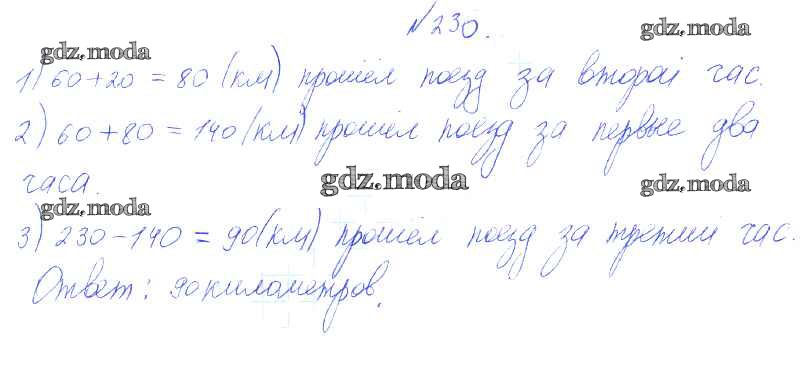 №230.
gdz.moda gdz.moda
1) 60+20 = 80 (км) прошёл поезд за второй час.
2) 60+80 = 140 (км) прошёл поезд за первые два
часа. gdz.moda gdz.moda
gdz.moda
3) 230-140 = 90 (км) прошёл поезд за третий час.
Ответ: 90 километров.